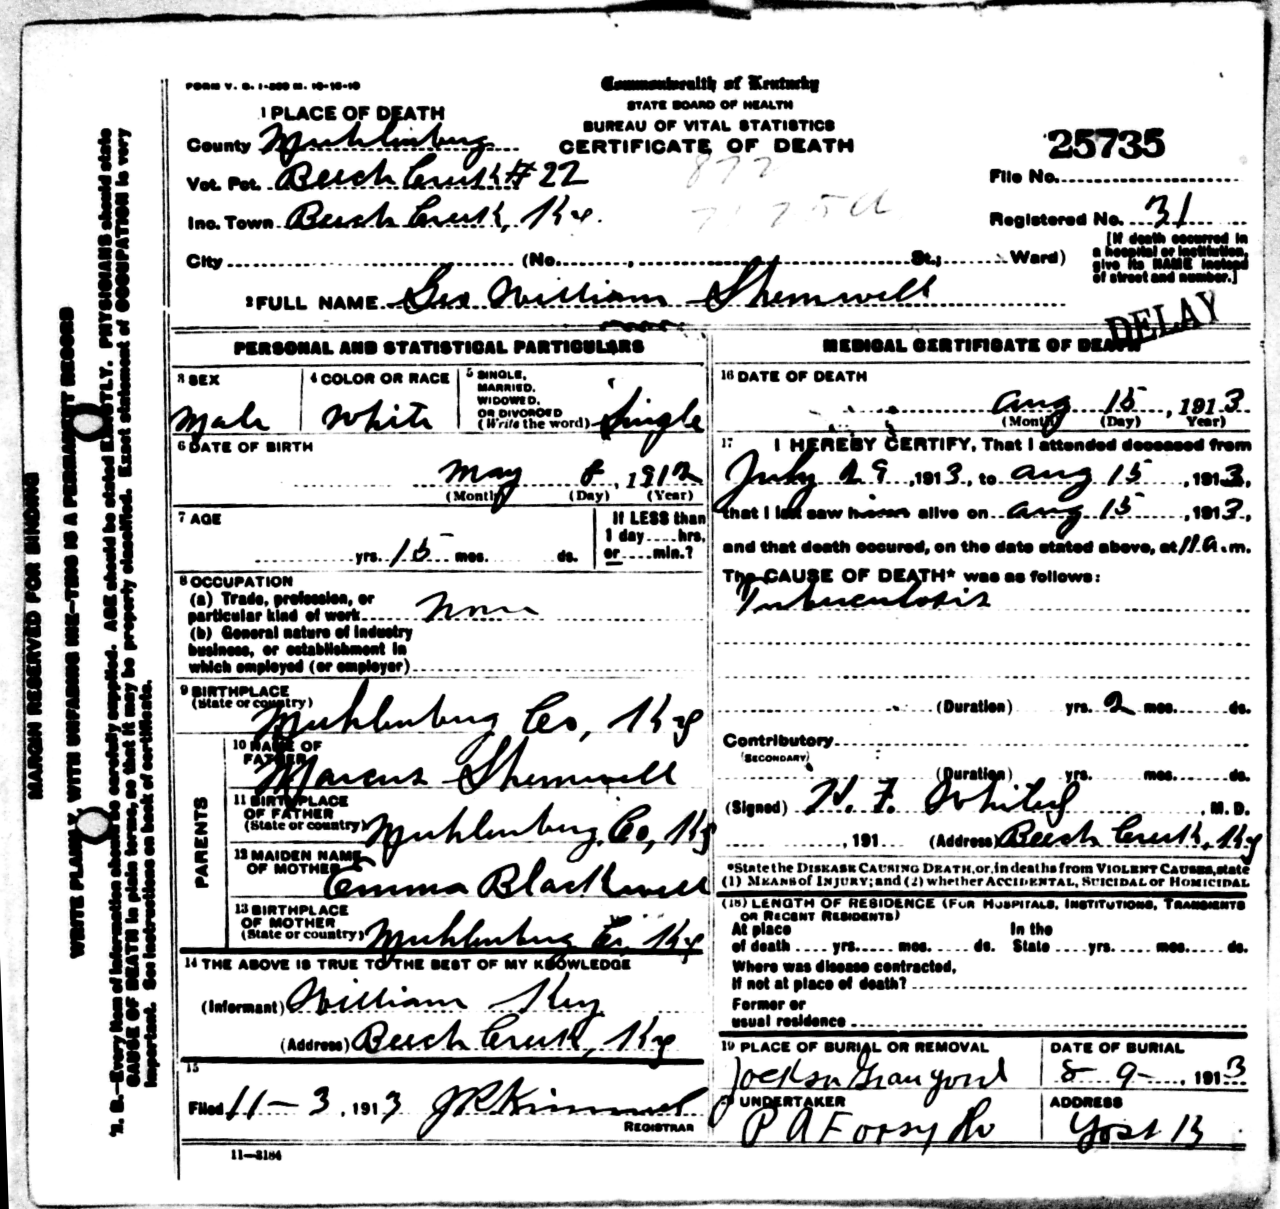 FORM V. S. 1-200 M. 10-10-10
Commonwealth of Kentucky
STATE BOARD OF HEALTH
BUREAU OF VITAL STATISTICS
CERTIFICATE OF DEATH
1 PLACE OF DEATH
County Muhlenburg
Vot. Pct. Beech Creek # 22
Inc. Town Beech Creek, Ky.
City (No. , St.; Ward)
25735
File No.
Registered No. 31
[If death occurred in
a hospital or institution,
give its NAME instead
of street and number.]
2 FULL NAME Geo William Shemwell
DELAY
PERSONAL AND STATISTICAL PARTICULARS
3 SEX
Male
4 COLOR OR RACE
White
5 SINGLE,
MARRIED,
WIDOWED,
OR DIVORCED
(Write the word) Single
6 DATE OF BIRTH
May 8, 1912
(Month) (Day) (Year)
7 AGE
yrs. 15 mos. ds.
If LESS than
1 day hrs.
or min.?
8 OCCUPATION
(a) Trade, profession, or
particular kind of work None
(b) General nature of industry
business, or establishment in
which employed (or employer)
9 BIRTHPLACE
(State or country)
Muhlenburg Co, Ky
PARENTS
10 NAME OF
FATHER
Marcus Shemwell
11 BIRTHPLACE
OF FATHER
(State or country) Muhlenburg Co, Ky
12 MAIDEN NAME
OF MOTHER
Emma Blackwell
13 BIRTHPLACE
OF MOTHER
(State or country) Muhlenburg Co, Ky
14 THE ABOVE IS TRUE TO THE BEST OF MY KNOWLEDGE
(Informant) William Key
(Address) Beech Creek, Ky
15
Filed 11-3, 1913 J R Kimmel
REGISTRAR
11-3184
MEDICAL CERTIFICATE OF DEATH
16 DATE OF DEATH
Aug 15, 1913
(Month) (Day) Year)
17 I HEREBY CERTIFY, That I attended deceased from
July 29, 1913, to Aug 15, 1913,
that I last saw him alive on Aug 15, 1913,
and that death occured, on the date stated above, at 11 a.m.
The CAUSE OF DEATH* was as follows:
Tuberculosis
(Duration) yrs. 2 mos. ds.
Contributory
(SECONDARY)
(Duration) yrs. mos. ds.
(Signed) , M.D.
, 191 (Address) Beech Creek, Ky
*State the DISEASE CAUSING DEATH, or, in deaths from VIOLENT CAUSES, state
(1) MEANS of INJURY; and (2) whether ACCIDENTAL, SUICIDAL or HOMICIDAL
(18) LENGTH OF RESIDENCE (FOR HOSPITALS, INSTITUTIONS, TRANSIENTS
OR RECENT RESIDENTS)
At place In the
of death yrs. mos. ds. State yrs. mos. ds.
Where was disease contracted,
If not at place of death?
Former or
usual residence
19 PLACE OF BURIAL OR REMOVAL
Jockson Graveyord
DATE OF BURIAL
8-9-, 1913
UNDERTAKER
P A Forsythe
ADDRESS
Yost K
MARGIN RESERVED FOR BINDING
WRITE PLAINLY, WITH UNFADING INK—THIS IS A PERMANENT RECORD
N. B.—Every item of information should be carefully supplied. AGE should be stated EXACTLY. PHYSICIANS should state
CAUSE OF DEATH in plain terms, so that it may be properly classified. Exact statement of OCCUPATION is very
important. See instructions on back of certificate.